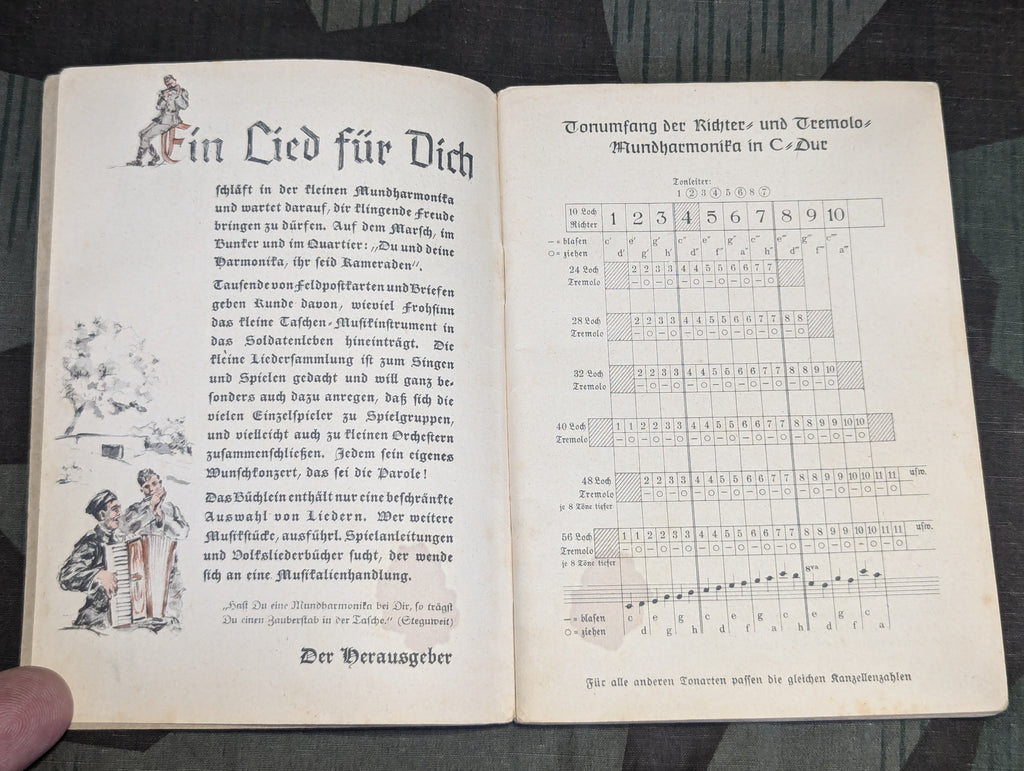 Ein Lied für Dich
schläft in der kleinen Mundharmonika
und wartet darauf, dir klingende Freude
bringen zu dürfen. Auf dem Marsch, im
Bunker und im Quartier: „Du und deine
Harmonika, ihr seid Kameraden“.
Tausende von Feldpostkarten und Briefen
geben Kunde davon, wieviel Frohsinn
das kleine Taschen-Musikinstrument in
das Soldatenleben hineinträgt. Die
kleine Liedersammlung ist zum Singen
und Spielen gedacht und will ganz be-
sonders auch dazu anregen, daß sich die
vielen Einzelspieler zu Spielgruppen,
und vielleicht auch zu kleinen Orchestern
zusammenschließen. Jedem sein eigenes
Wunschkonzert, das sei die Parole!
Das Büchlein enthält nur eine beschränkte
Auswahl von Liedern. Wer weitere
Musikstücke, ausführl. Spielanleitungen
und Volksliederbücher sucht, der wende
sich an eine Musikalienhandlung.
„Hast Du eine Mundharmonika bei Dir, so trägst
Du einen Zauberstab in der Tasche.“ (Steguweit)
Der Herausgeber
Tonumfang der Richter- und Tremolo-
Mundharmonika in C-Dur
Tonleiter:
1 ② 3 ④ 5 ⑥ 8 ⑦
10 Loch Richter 1 2 3 4 5 6 7 8 9 10
— = blasen c' e' g' c'' e'' g'' c''' e''' g''' c''''
○ = ziehen d' g' h' d'' f'' a'' h'' d''' f''' a'''
24 Loch 2 2 3 3 4 4 5 5 6 6 7 7
Tremolo — ○ — ○ — ○ — ○ — ○ — ○
28 Loch 2 2 3 3 4 4 5 5 6 6 7 7 8 8
Tremolo — ○ — ○ — ○ — ○ — ○ — ○ — ○
32 Loch 2 2 3 3 4 4 5 5 6 6 7 7 8 8 9 10
Tremolo — ○ — ○ — ○ — ○ — ○ — ○
40 Loch 1 1 2 2 3 3 4 4 5 5 6 6 7 7 8 8 9 9 10 10
Tremolo — ○ — ○ — ○ — ○ — ○ — ○
48 Loch 2 2 3 3 4 4 5 5 6 6 7 7 8 8 9 9 10 10 11 11 usw.
Tremolo
je 8 Töne tiefer
56 Loch 1 1 2 2 3 3 4 4 5 5 6 6 7 7 8 8 9 9 10 10 11 11 usw.
Tremolo
je 8 Töne tiefer
8va
— = blasen c e g c e g c e g c
○ = ziehen d g h d f a h d f a
Für alle anderen Tonarten passen die gleichen Kanzellenzahlen